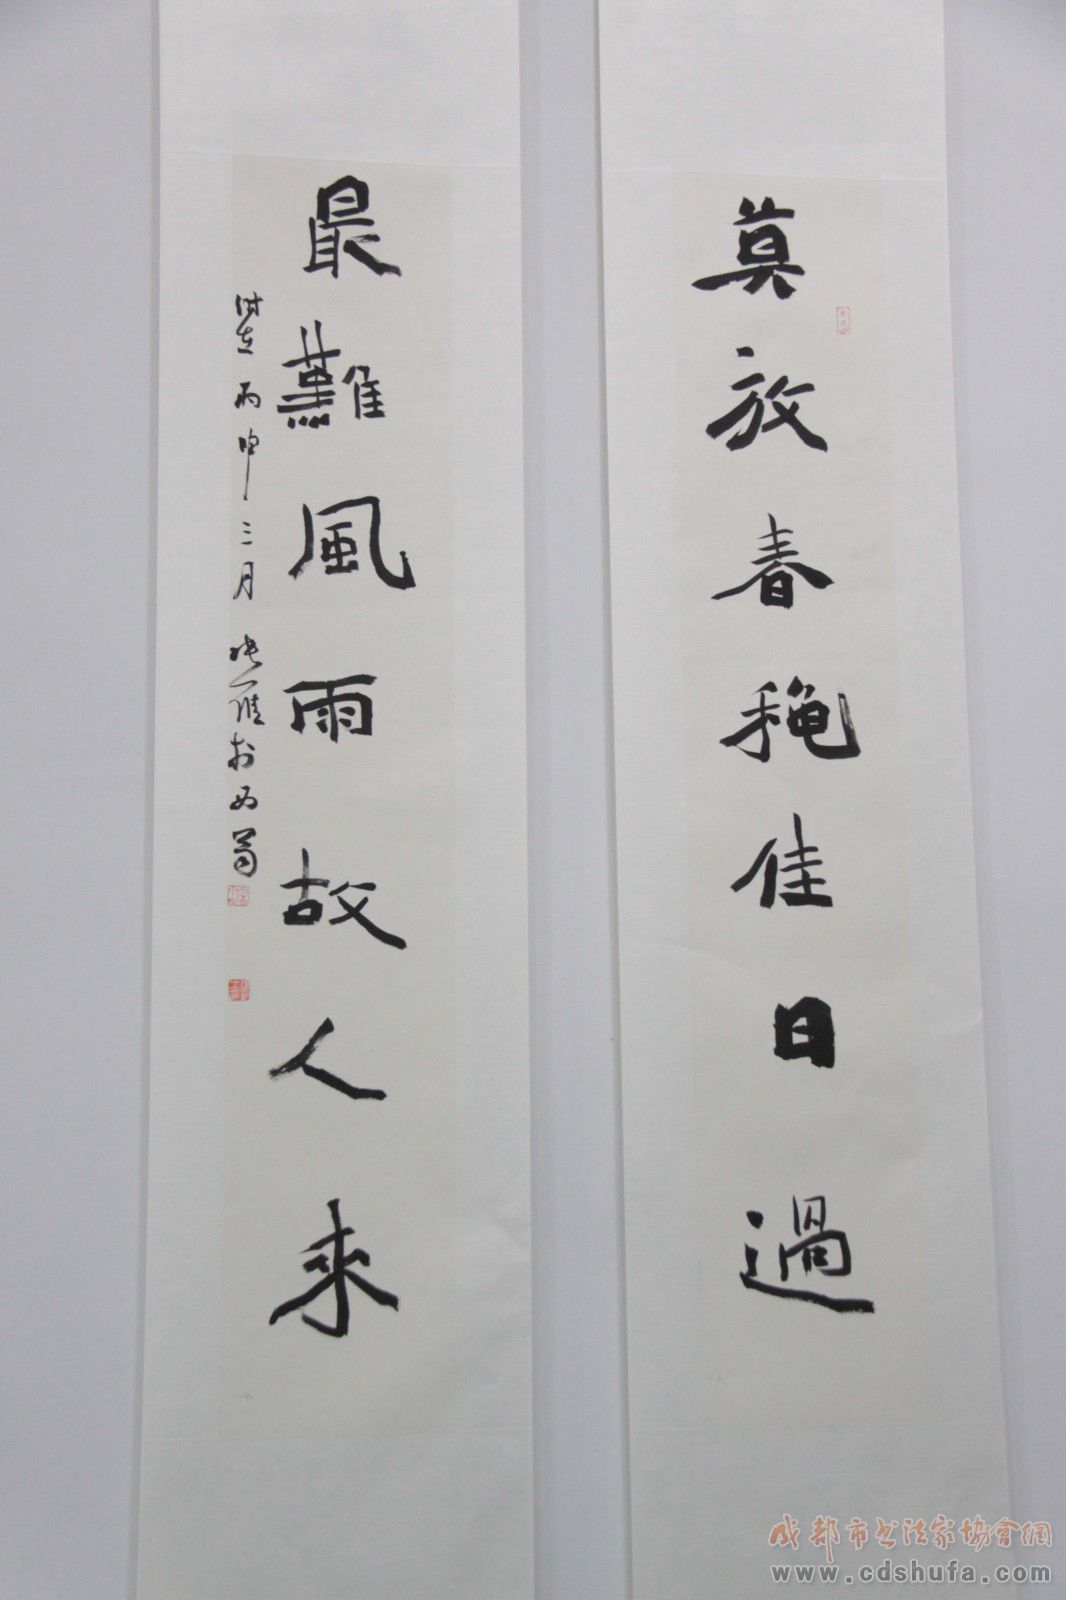 莫放春龝佳日過
最難風雨故人來
时在丙申三月 於西蜀
成都市书法家協會網
www.cdshufa.com